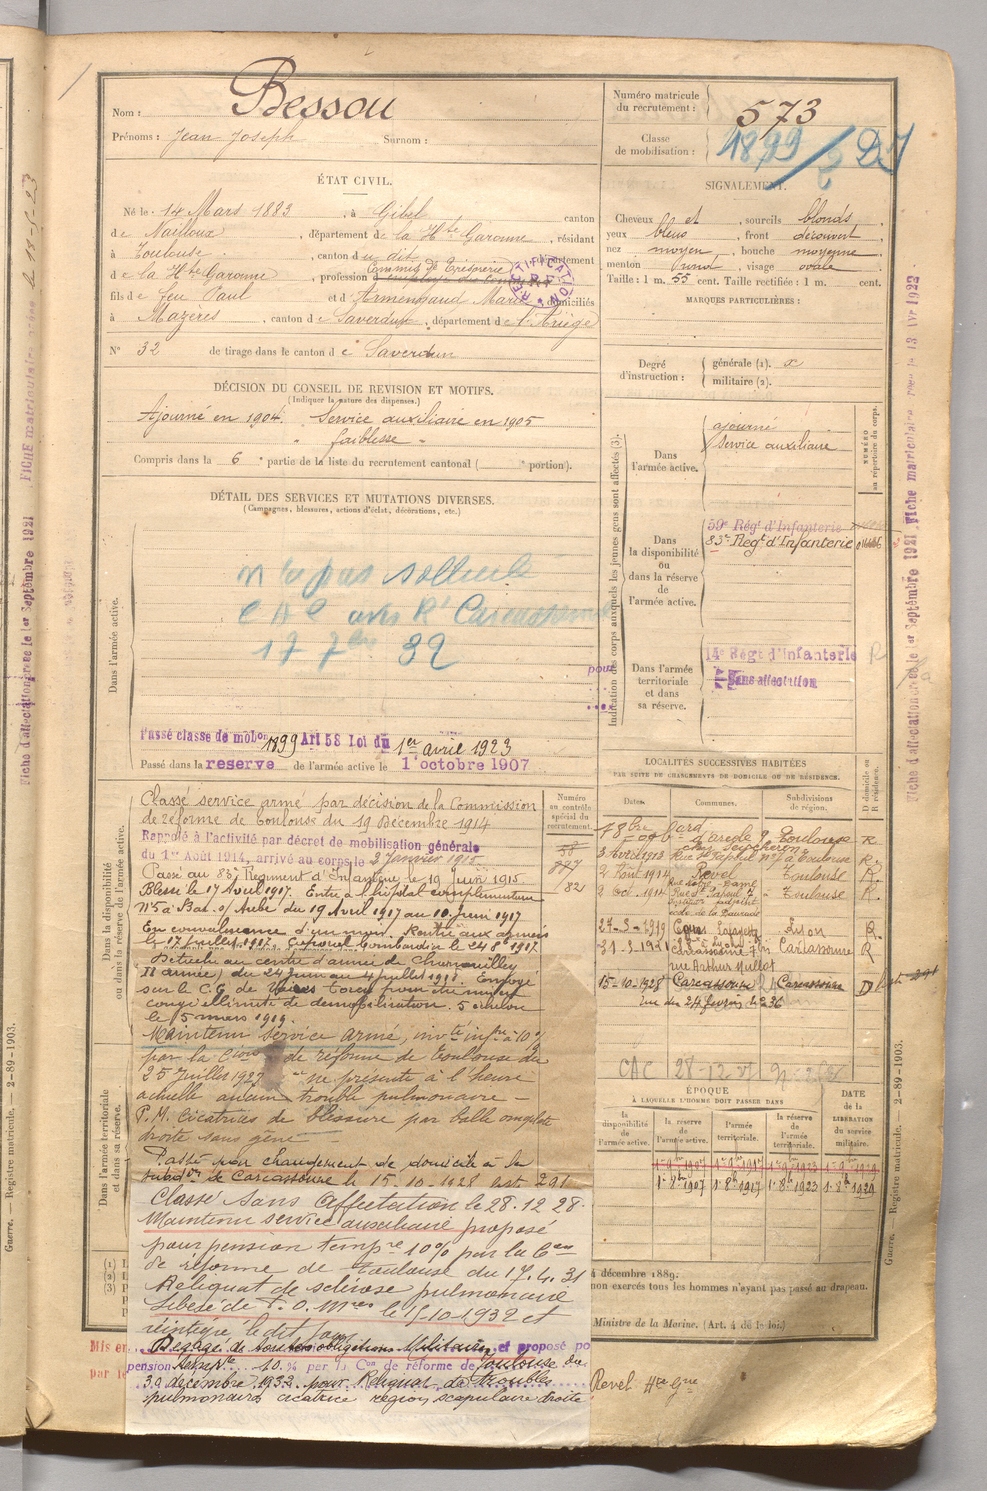 Nom : Bessou
Prénoms : Jean Joseph Surnom :
Numéro matricule du recrutement : 573
Classe de mobilisation : 1899
ÉTAT CIVIL.
Né le 14 Mars 1883, à Gibel canton
de Nailloux, département de la Hte Garonne, résidant
à Toulouse, canton du dit, département
de la Hte Garonne, profession d
Commis de Trésorerie
RECTIFICATION
R F
fils de feu Paul et d'Armengaud Marie domiciliés
à Mazères, canton de Saverdun, département de l'Ariège
N° 32 de tirage dans le canton de Saverdun
SIGNALEMENT.
Cheveux et, sourcils blonds
yeux bleus, front découvert,
nez moyen, bouche moyenne
menton rond, visage ovale
Taille : 1 m. 55 cent. Taille rectifiée : 1 m. cent.
MARQUES PARTICULIÈRES :
Degré d'instruction : générale (1). x
militaire (2).
DÉCISION DU CONSEIL DE REVISION ET MOTIFS.
(Indiquer la nature des dispenses.)
Ajourné en 1904. Service auxiliaire en 1905
faiblesse
Compris dans la 6e partie de la liste du recrutement cantonal (e portion).
DÉTAIL DES SERVICES ET MUTATIONS DIVERSES.
(Campagnes, blessures, actions d'éclat, décorations, etc.)
Dans l'armée active.
n'a pas sollicité
17 7bre 32
Passé classe de mobon 1899 Art 58 Loi du 1er avril 1923
Passé dans la réserve de l'armée active le 1 octobre 1907
Indication des corps auxquels les jeunes gens sont affectés (3).
Dans l'armée active.
ajourné
Service auxiliaire
NUMÉRO au répertoire du corps.
Dans la disponibilité ou dans la réserve de l'armée active.
59e Régt d'Infanterie
83e Régt d'Infanterie
Dans l'armée territoriale et dans sa réserve.
14e Régt d'Infanterie
Sans affectation
pour
Dans la disponibilité ou dans la réserve de l'armée active.
Classé service armé par décision de la Commission
de réforme de Toulouse du 19 Décembre 1914
Rappelé à l'activité par décret de mobilisation générale
du 1er Août 1914, arrivé au corps le 2 Janvier 1915
Passé au 83e Régiment d'Infanterie le 19 Juin 1915
Blessé le 17 Avril 1917. Entré à l'hôpital complémentaire
N°5 à Bar s/ Aube du 19 Avril 1917 au 10 Juin 1917
En convalescence d'un mois. Rentré aux armées
le 17 Juillet 1917. Caporal bombardier le 24 8bre 1917
Détaché au centre d'armée de
II armée) du 24 Juin au 4 Juillet 1918. Envoyé
congé illimité de démobilisation 5e échelon
le 5 mars 1919.
Maintenu service armé, invté infre à 10%
par la Cion de réforme de Toulouse du
25 Juillet 1927 "ne présente à l'heure
actuelle aucun trouble pulmonaire –
P.M. Cicatrices de blessure par balle omoplate
droite sans gêne
Passé par changement de domicile à la
subdon de Carcassonne le 15-10-1928 est 291
Classé sans affectation le 28.12.28.
Maintenu service auxiliaire proposé
pour pension tempre 10% par la Con
de réforme de Toulouse du 17.4.31
Reliquat de sclérose pulmonaire
Libéré de S. O. Mres le 15-10-1932 et
réintégré le dit jour
Dégagé de toutes obligations Militaires et proposé po
pension tempre 10 % par la Con de réforme de Toulouse du
30 décembre 1932 pour Reliquat de troubles
pulmonaires cicatrice région scapulaire droite
Numéro au contrôle spécial du recrutement.
LOCALITÉS SUCCESSIVES HABITÉES
PAR SUITE DE CHANGEMENTS DE DOMICILE OU DE RÉSIDENCE.
Dates. Communes. Subdivisions de région. D domicile ou R résidence.
Toulouse R
3 1913 à Toulouse R.
2 Août 1914 Revel Toulouse R.
2 Oct. 1914 Toulouse R.
27-3-1919 Lyon R.
31-3-1921 Carcassonne R
rue Arthur Mullot
15-10-1928 Carcassonne Carcassonne D
rue du 24 février n° 36
CAC 28-12-37
ÉPOQUE
À LAQUELLE L'HOMME DOIT PASSER DANS
DATE de la LIBÉRATION du service militaire.
la disponibilité de l'armée active. la réserve de l'armée active. l'armée territoriale. la réserve de l'armée territoriale.
1-8bre 1907 1-8bre 1917 1-8bre 1923 1-8bre 1929
Dans l'armée territoriale et dans sa réserve.
(1)
(2)
(3)
4 décembre 1889.
non exercés tous les hommes n'ayant pas passé au drapeau.
Ministre de la Marine. (Art. 4 de la loi.)
Mis en
par
Revel Hte Gne
Guerre. — Registre matricule. — 2-89-1903.
Guerre. — Registre matricule. — 2-89-1903.
Fiche d'affectation créée le 1er Septembre 1921
FICHE matriculaire créée le 18-5-23
Fiche d'affectation créée le 1er Septembre 1921. Fiche matriculaire créée le 13 Avr 1922